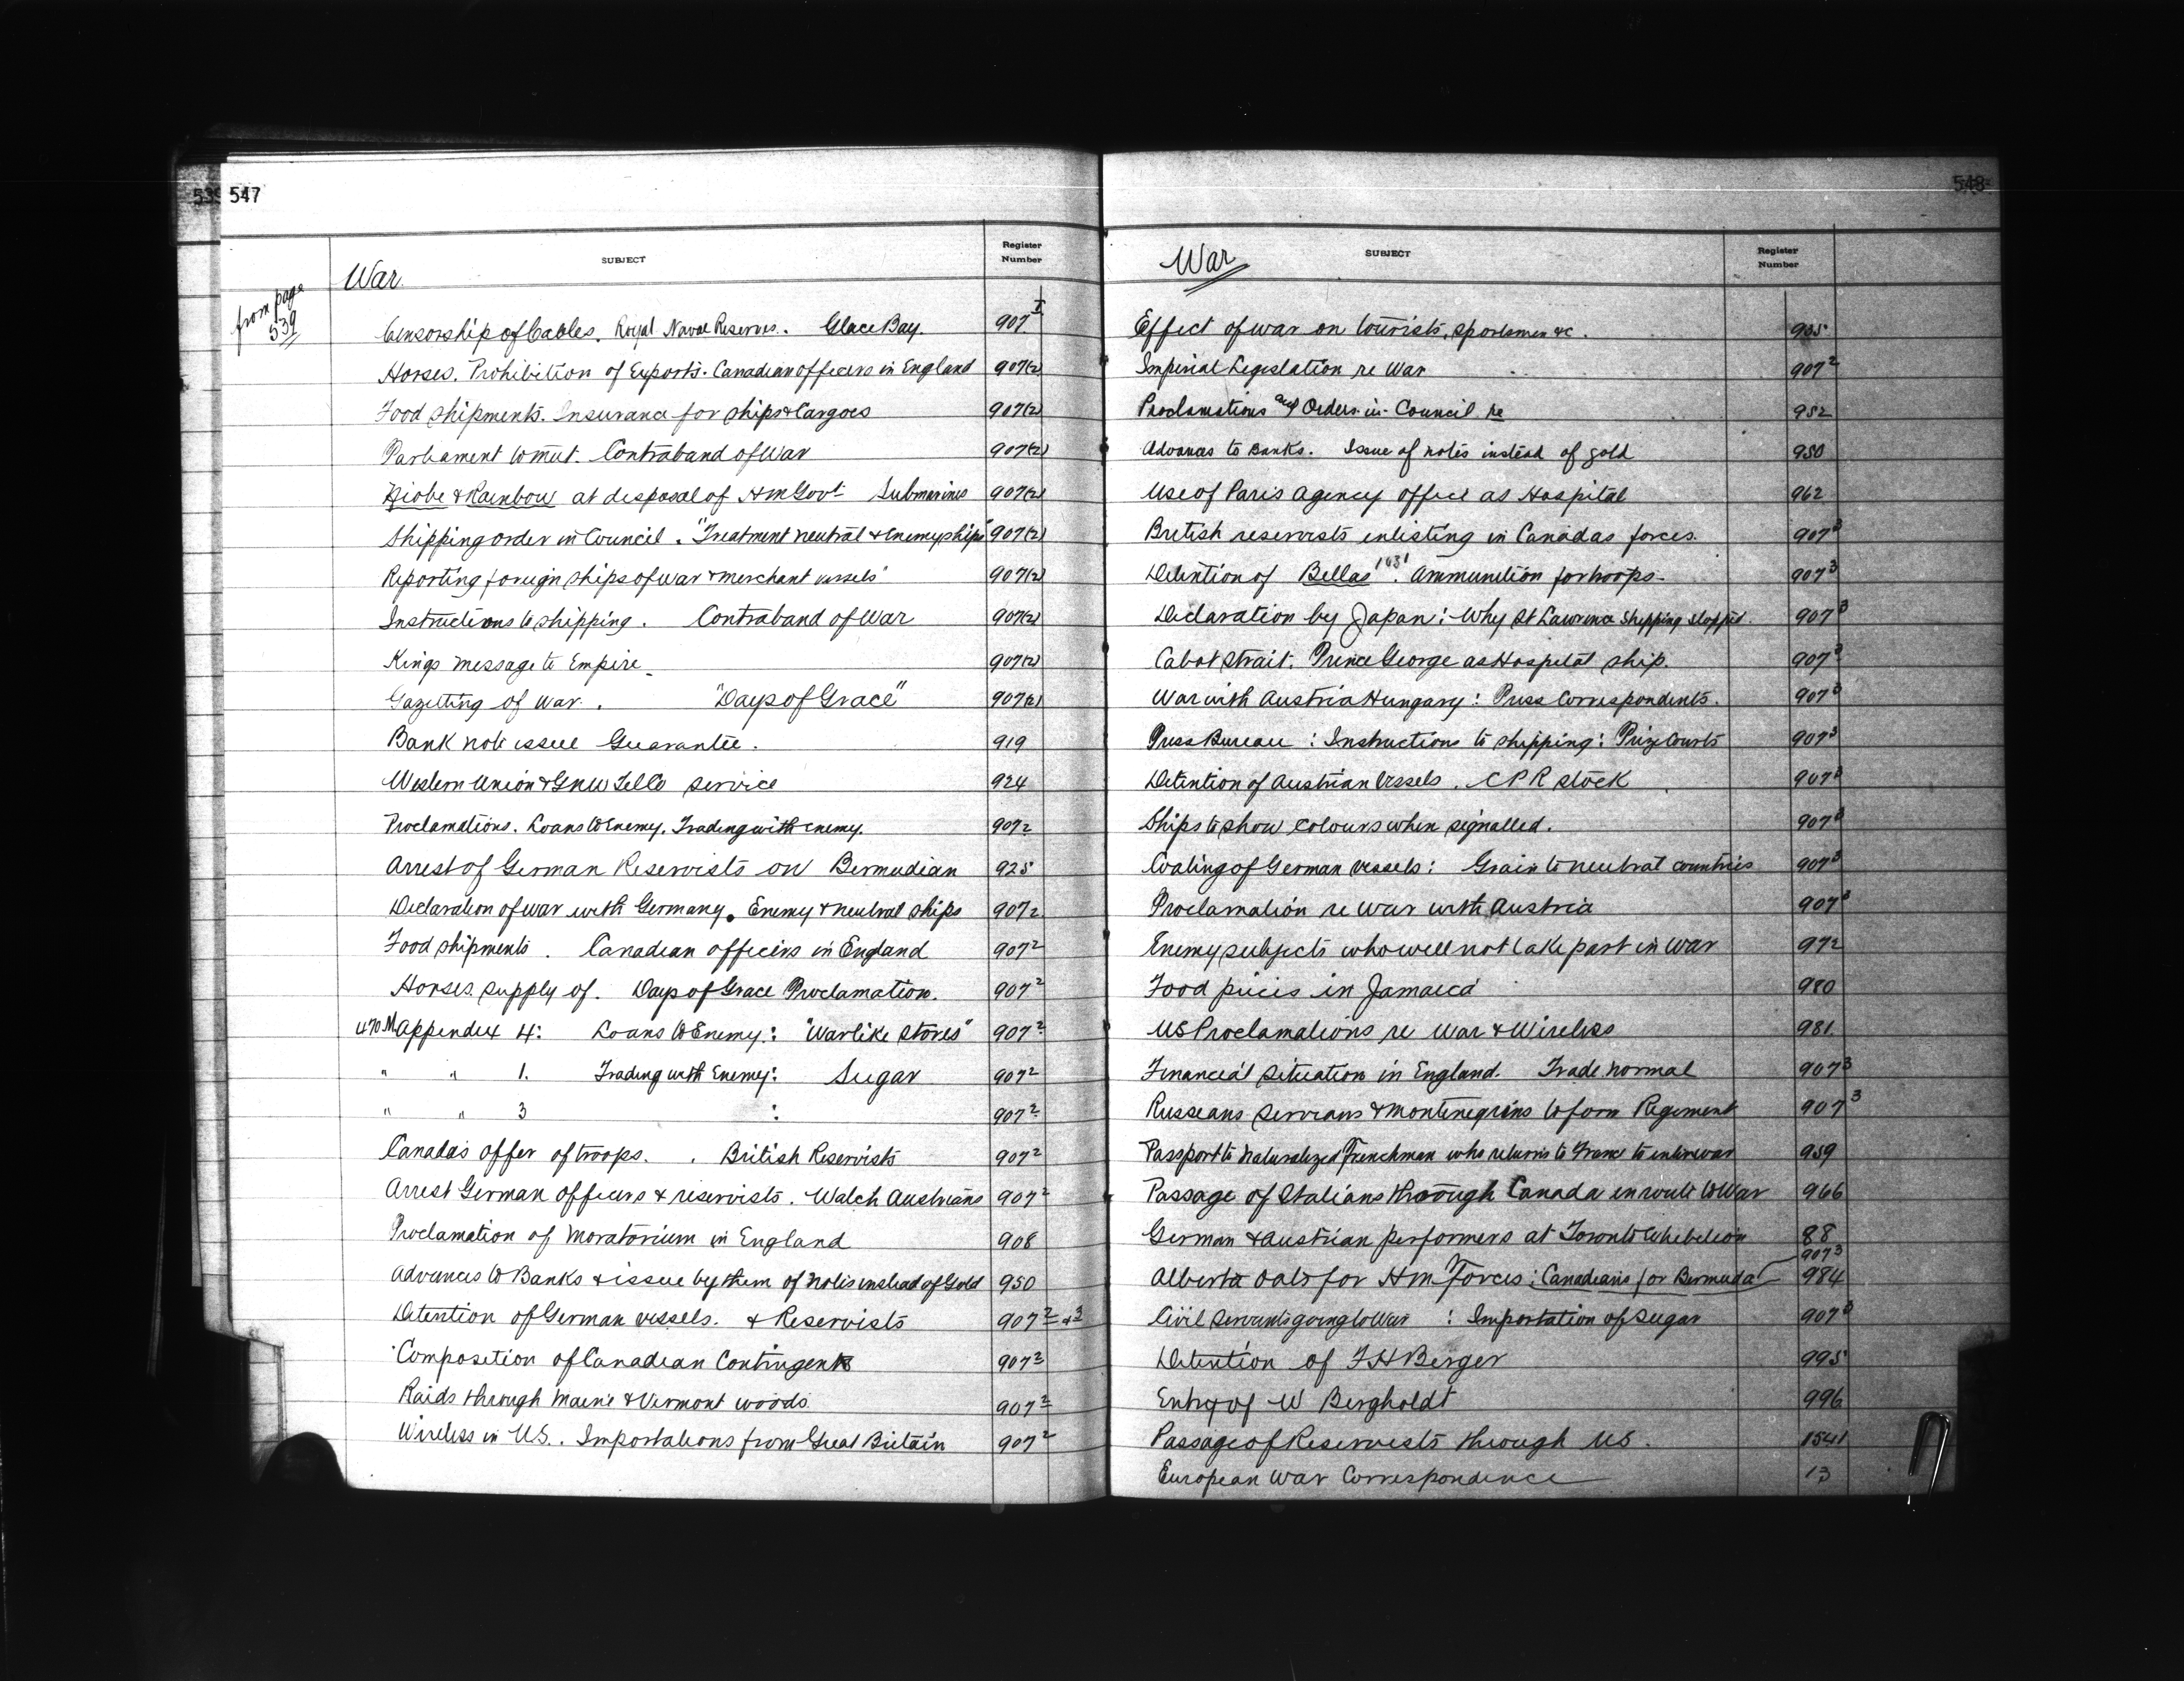 539 547
SUBJECT Register Number
War
from page 539
Censorship of Cables. Royal Naval Reserves. Glace Bay. 907 I
Horses. Prohibition of Exports. Canadian officers in England 907(2)
Food shipments. Insurance for ships & Cargoes 907(2)
Parliament to meet. Contraband of War 907(2)
Niobe & Rainbow at disposal of HM Govt. Submarines 907(2)
Shipping order in Council. "Treatment neutral & Enemy ships" 907(2)
Reporting foreign ships of war & merchant vessels 907(2)
Instructions to shipping. Contraband of War 907(2)
Kings message to Empire 907(2)
Gazetting of War. "Days of Grace" 907(2)
Bank note issue Guarantee. 919
Western Union & GNW Tel Co service 924
Proclamations. Loans to Enemy. Trading with enemy. 9072
Arrest of German Reservists on Bermudian 925
Declaration of war with Germany. Enemy & neutral ships 9072
Food shipments. Canadian officers in England 907 2
Horses supply of. Days of Grace Proclamation. 907 2
470M Appendix 4: Loans to Enemy: "Warlike stores" 907 2
" " 1. Trading with Enemy: Sugar 907 2
" " 3 : 907 2
Canada's offer of troops. . British Reservists 907 2
Arrest German officers & reservists. Watch Austrians 907 2
Proclamation of moratorium in England 908
Advances to Banks & issue by them of notes instead of Gold 950
Detention of German vessels. & Reservists 907 2 & 3
Composition of Canadian Contingent 907 2
Raids through Maine & Vermont woods 907 2
Wireless in U.S. . Importations from Great Britain 907 2
548
War SUBJECT Register Number
Effect of war on tourists, sportsmen &c. 935
Imperial Legislation re War 907 2
Proclamations and Orders-in-Council re 952
Advances to Banks. Issue of notes instead of gold 950
Use of Paris agency office as Hospital 962
British reservists enlisting in Canadas forces. 907 3
Detention of Bellas 1031. Ammunition for troops. 907 3
Declaration by Japan: Why St Lawrence Shipping stopped. 907 3
Cabot Strait. Prince George as Hospital ship. 907 3
War with Austria Hungary: Press Correspondents. 907 3
Press Bureau: Instructions to shipping: Prize Courts 907 3
Detention of Austrian Vessels. CPR stock 907 3
Ships to show colours when signalled. 907 3
Coaling of German vessels: Grain to neutral countries 907 3
Proclamation re war with Austria 907 3
Enemy subjects who will not take part in war 972
Food prices in Jamaica 980
US Proclamations re War & Wireless 981
Financial situation in England. Trade normal 907 3
Russians Servians & Montenegrins to form Regiment 907 3
Passport to Naturalized Frenchman who returns to France to enter war 959
Passage of Italians through Canada en route to War 966
German & Austrian performers at Toronto Exhibition 88
907 3
Alberta oats for HM Forces: Canadians for Bermuda 984
Civil Servants going to War : Importation of sugar 907 3
Detention of F H Berger 995
Entry of W Bergholdt 996
Passage of Reservists through US. 1541
European War Correspondence 13